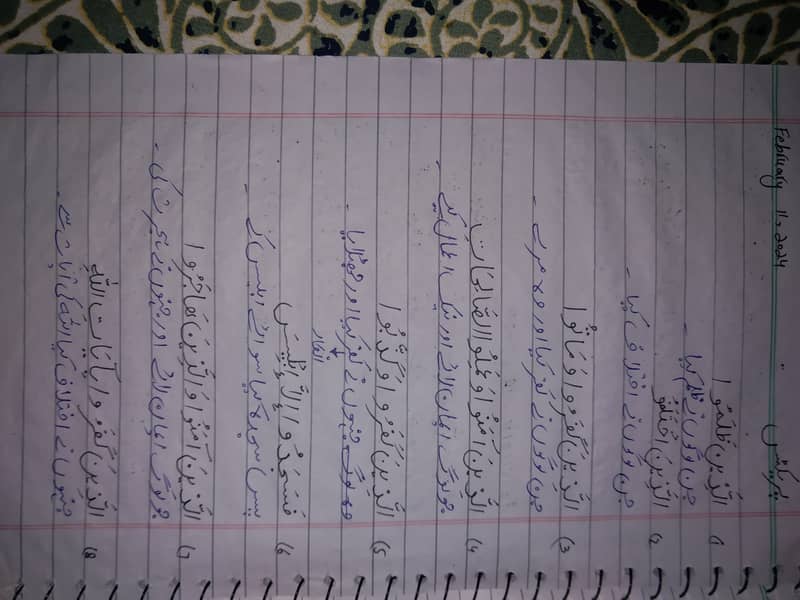 February 11, 2024
پریکٹس
1) الَّذِينَ ظَلَمُوا
جن لوگوں نے ظلم کیا۔
2) الَّذِينَ اخْتَلَفُوْ
جن لوگوں نے اختلاف کیا۔
3) الَّذِينَ كَفَرُوا وَ مَاتُوْا
جن لوگوں نے کفر کیا اور وہ مر گئے۔
4) الَّذِينَ آمَنُوْا وَ عَمِلُوْا الصَّالِحَات
جو لوگ ایمان لائے اور نیک اعمال کیے۔
5) الَّذِينَ كَفَرُوْا وَ كَذَّبُوْا
وہ لوگ جنہوں نے کفر کیا اور جھٹلایا۔
انکار
6) فَسَجَدُوا اِلَّا اِبْلِيْسَ
پس سجدہ کیا سوائے ابلیس کے۔
7) الَّذِينَ آمَنُوْا وَ الَّذِينَ هَاجَرُوا
جو لوگ ایمان لائے اور جنہوں نے ہجرت کی۔
8) الَّذِينَ كَفَرُوا بِآيَات اللّٰهِ
جنہوں نے اختلاف کیا اللہ کی آیات سے۔